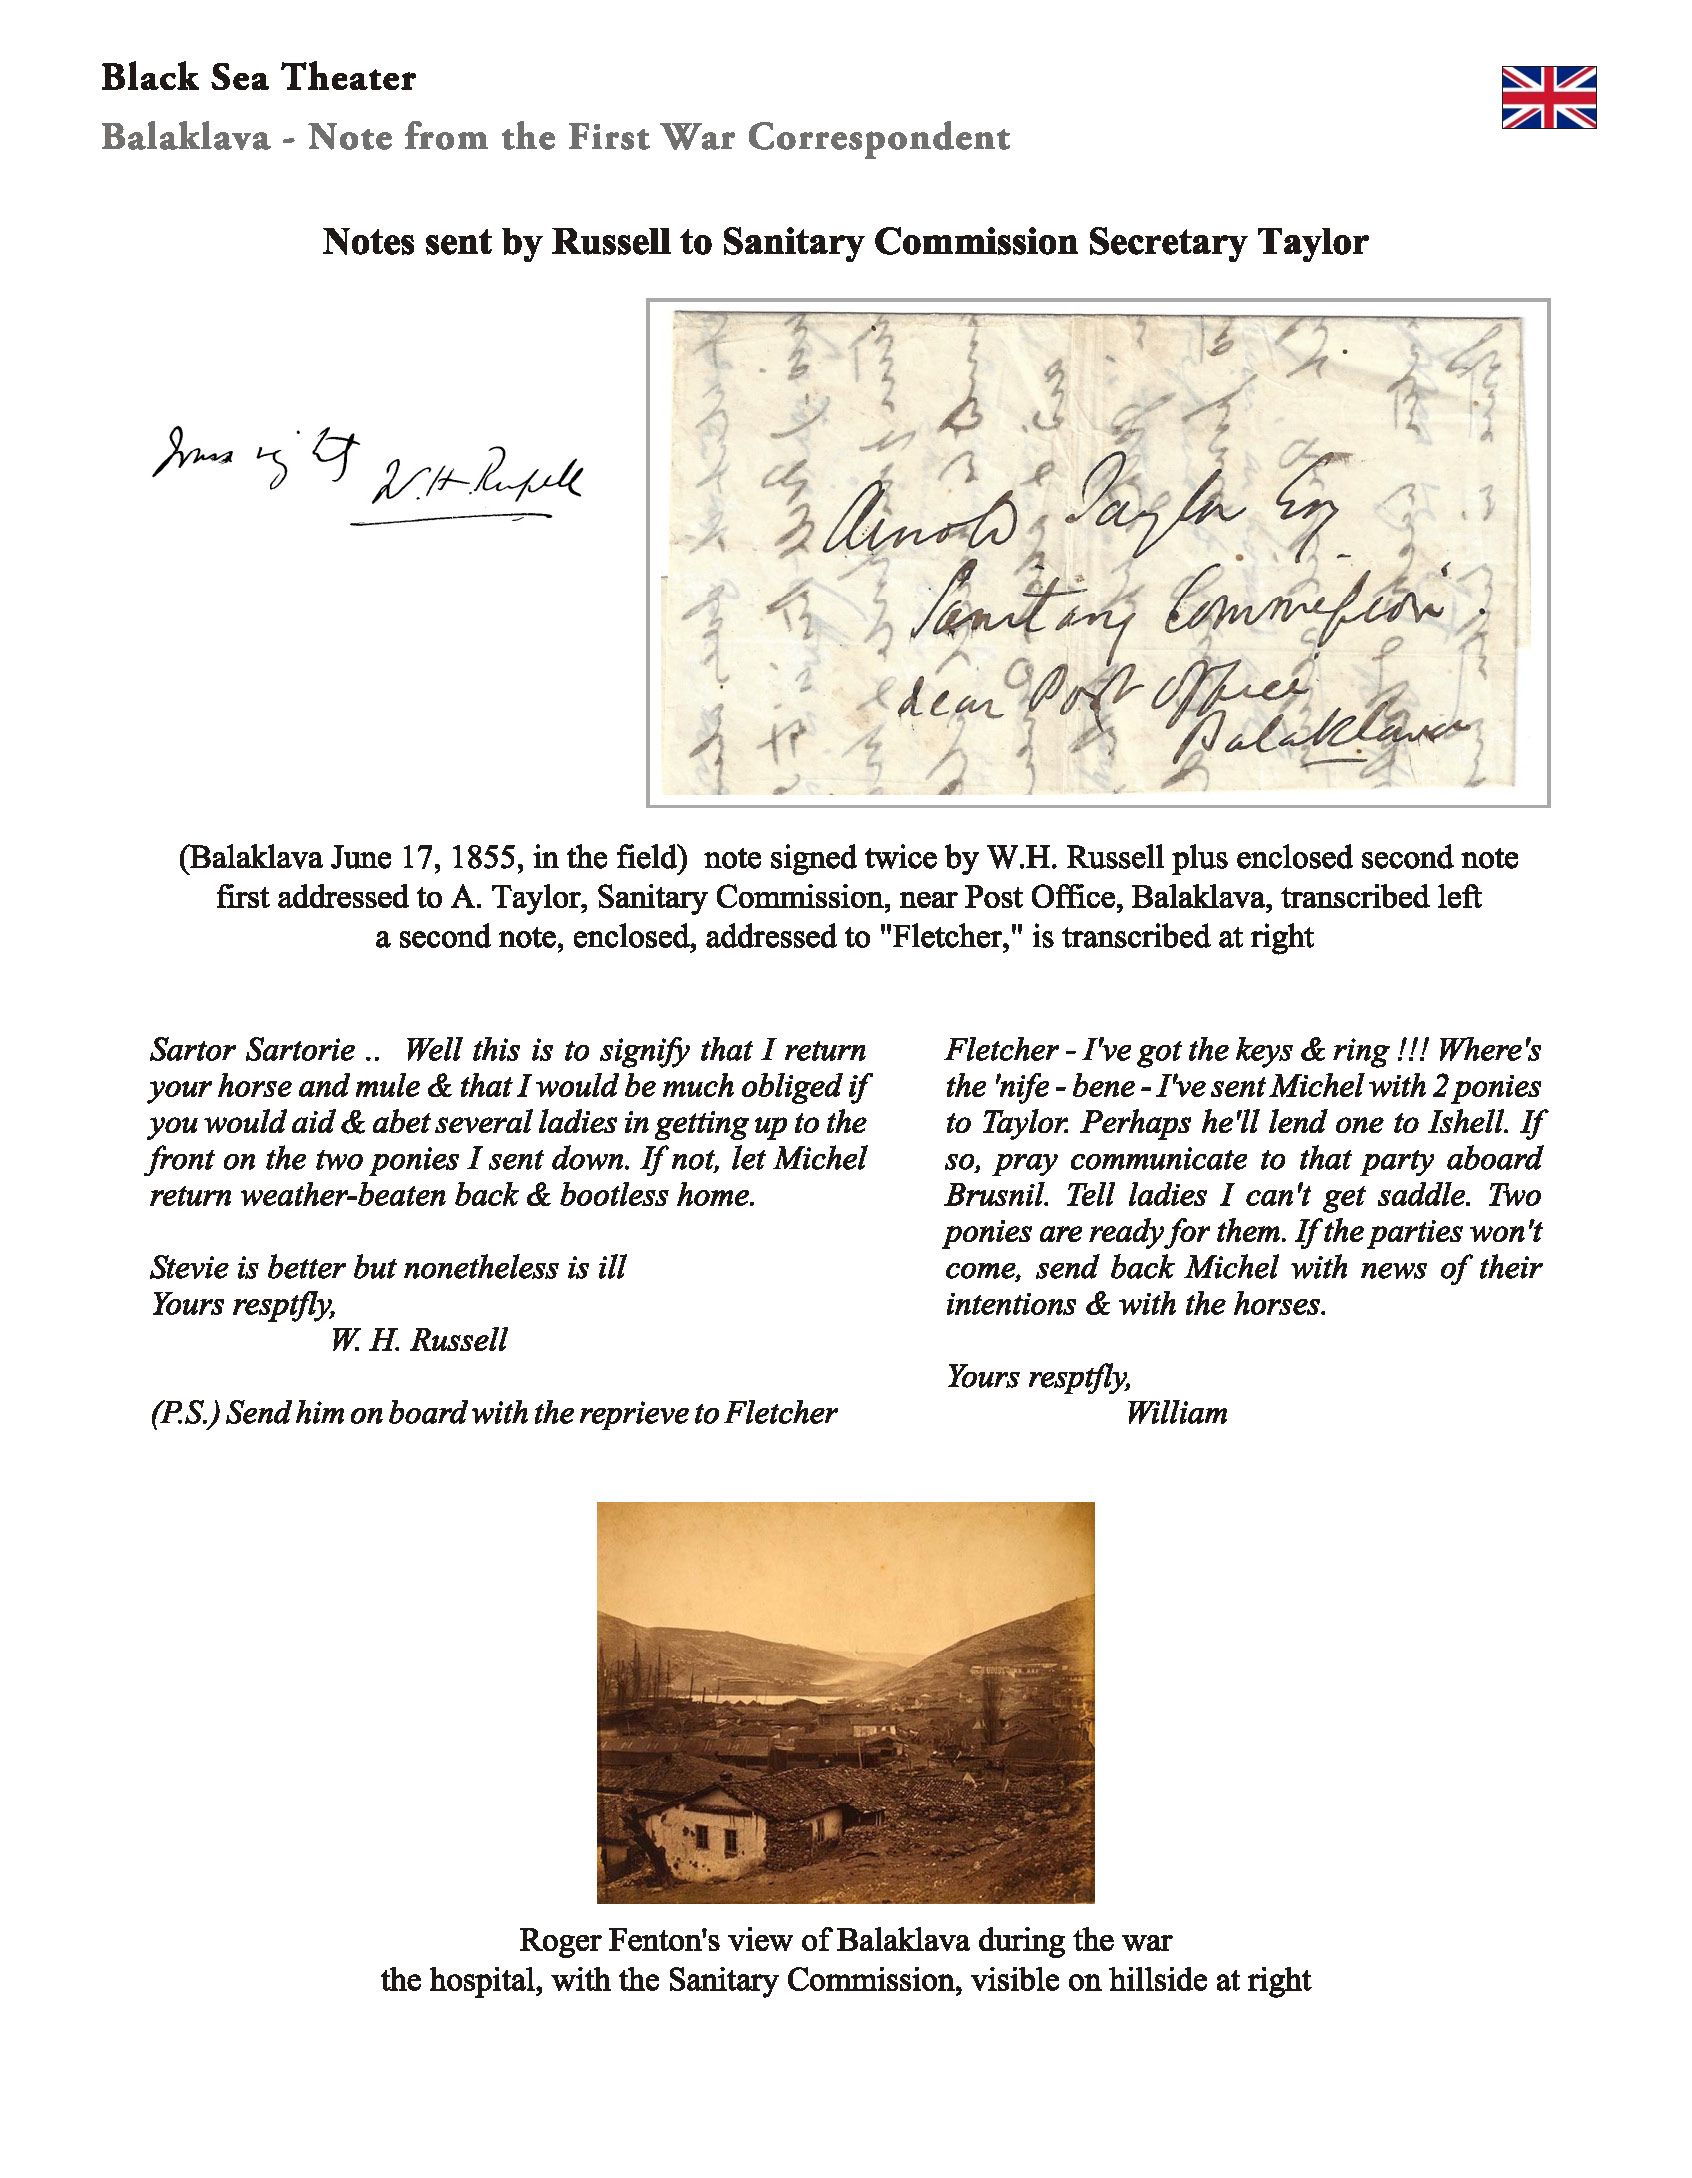 Black Sea Theater
Balaklava - Note from the First War Correspondent
Notes sent by Russell to Sanitary Commission Secretary Taylor
W.H. Russell
Arnold Taylor Esq
Sanitary Commission
near Post Office
Balaklava
(Balaklava June 17, 1855, in the field)  note signed twice by W.H. Russell plus enclosed second note
first addressed to A. Taylor, Sanitary Commission, near Post Office, Balaklava, transcribed left
a second note, enclosed, addressed to "Fletcher," is transcribed at right
Sartor Sartorie ..  Well this is to signify that I return
your horse and mule & that I would be much obliged if
you would aid & abet several ladies in getting up to the
front on the two ponies I sent down. If not, let Michel
return weather-beaten back & bootless home.
Stevie is better but nonetheless is ill
Yours resptfly,
W. H. Russell
(P.S.) Send him on board with the reprieve to Fletcher
Fletcher - I've got the keys & ring !!! Where's
the 'nife - bene - I've sent Michel with 2 ponies
to Taylor. Perhaps he'll lend one to Ishell. If
so, pray communicate to that party aboard
Brusnil. Tell ladies I can't get saddle. Two
ponies are ready for them. If the parties won't
come, send back Michel with news of their
intentions & with the horses.
Yours resptfly,
William
Roger Fenton's view of Balaklava during the war
the hospital, with the Sanitary Commission, visible on hillside at right